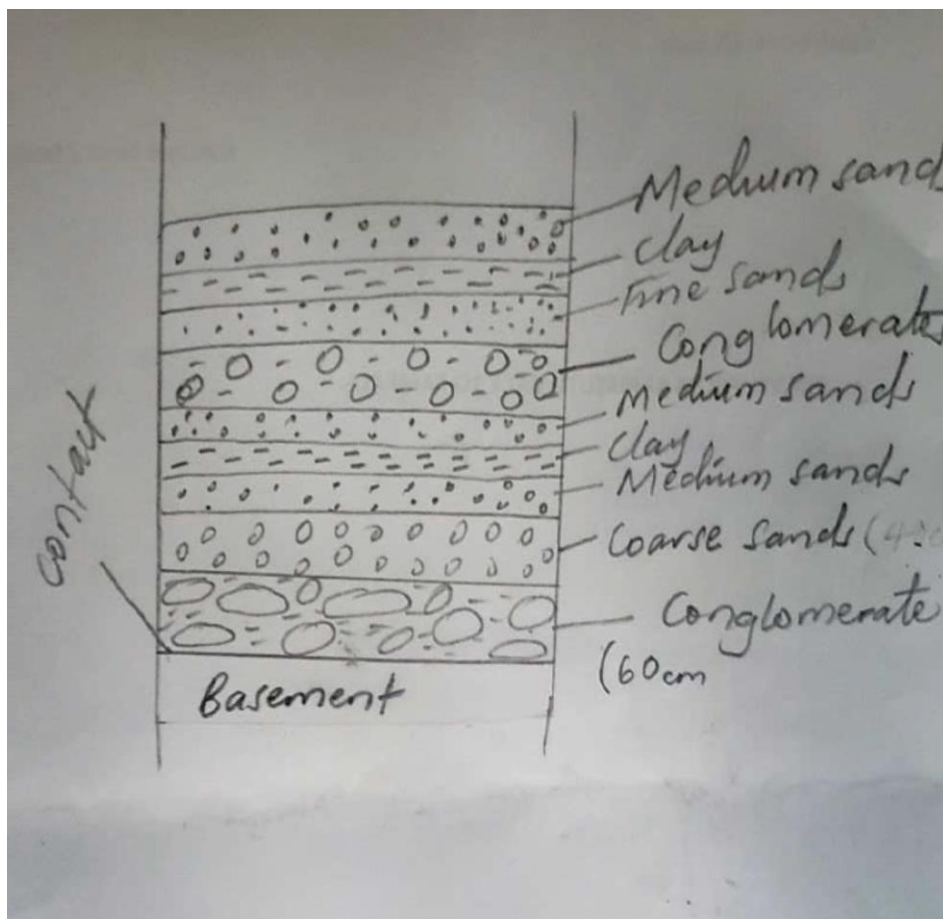 Medium sand
clay
Fine sands
Conglomerates
Medium sands
clay
Medium sands
Coarse sands
Conglomerate
(60cm
contact
Basement